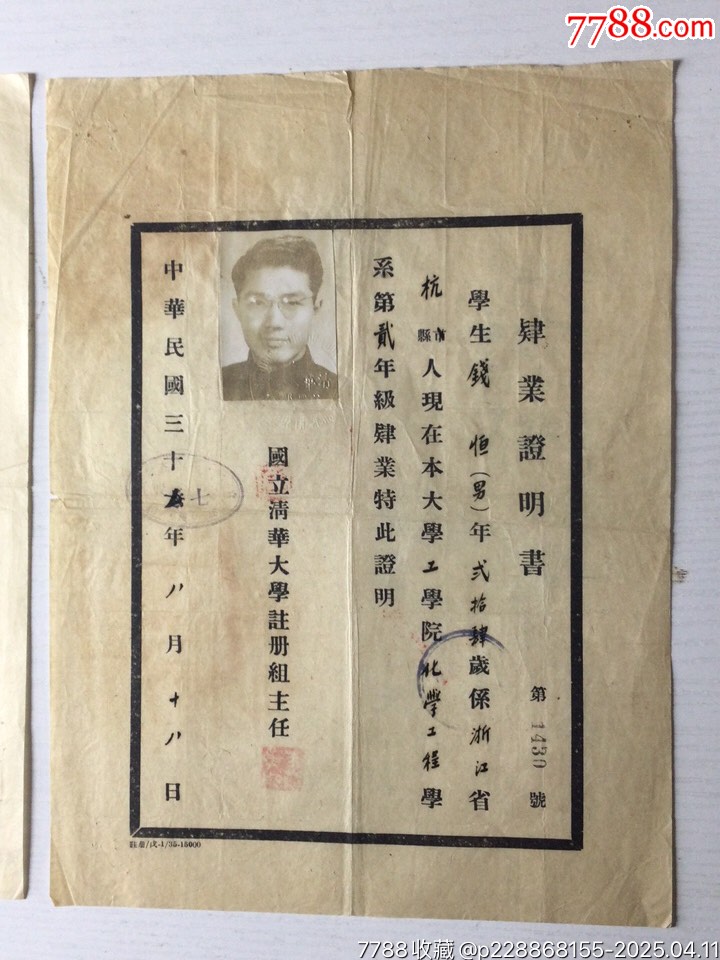 7788.com
肄業證明書
第1430號
學生錢恒(男)年弍拾肆歲係浙江省
杭縣市人現在本大學工學院化學工程學
系第貳年級肄業特此證明
國立清華大學註册組主任
中華民國三十七年八月十八日
註册/戊-1/35-15000
7788收藏@p228868155-2025.04.11